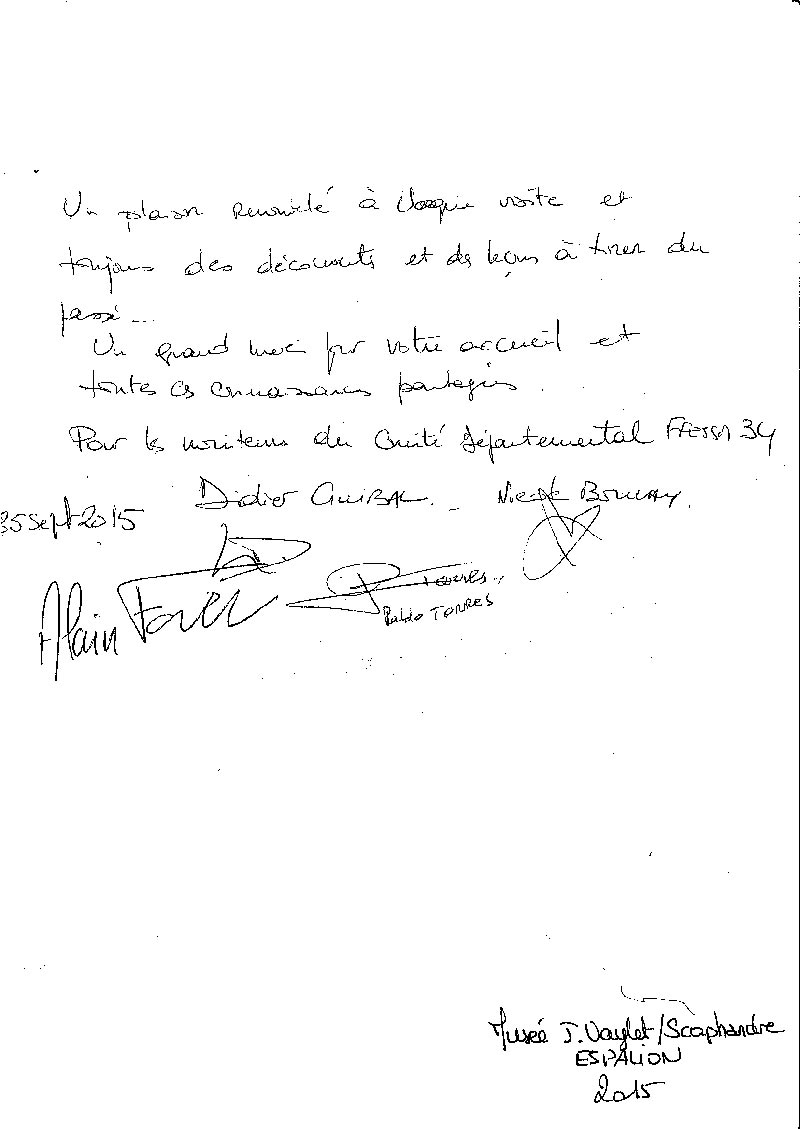 Un plaisir renouvelé à chaque visite et
toujours des découvertes et des leçons à tirer du
passé...
Un grand merci pour votre accueil et
toutes ces connaissances partagées.
Pour les moniteurs du Comité départemental FFESSM 34
Didier GUIBAL. -
25 Sept 2015
Alain
TORRES
Pablo TORRES
Musée J. Vaylet/Scaphandre
ESPALION
2015